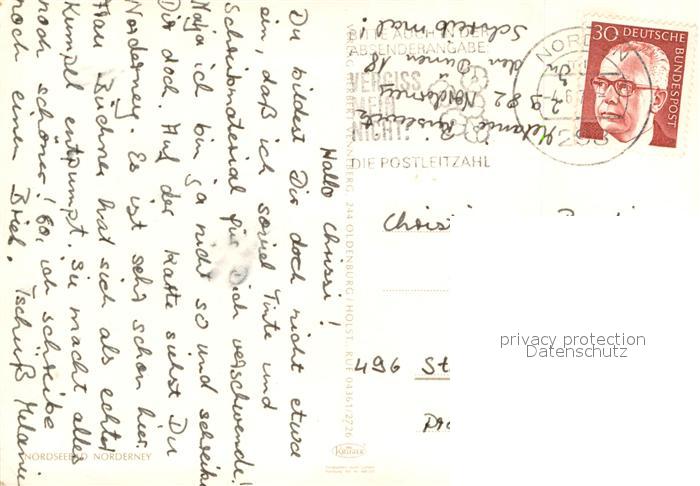 Hallo Chrissi!
Du bildest Dir doch nicht etwa
ein, daß ich soviel Tinte und
Schreibmaterial für Dich verschwende!
Naja ich bin ja nicht so und schreibe
Dir doch. Auf der Karte siehst Du
Norderney. Es ist sehr schön hier.
Frau Büchner hat sich als echter
Kumpel entpumpt. Sie macht alles
noch schöner! So, ich schreibe
noch einen Brief. Tschüß Melanie
Melanie
2982 Norderney
In den Dünen 18
Schreib mal!
BITTE AUCH IN DER
ABSENDERANGABE
VERGISS
MEIN
NICHT
DIE POSTLEITZAHL
NORDEN
298
30 DEUTSCHE
BUNDESPOST
244 OLDENBURG/HOLST. RUF 04361/2726
Christ
496 St
KRÜGER
NORDSEEBAD NORDERNEY
privacy protection
Datenschutz